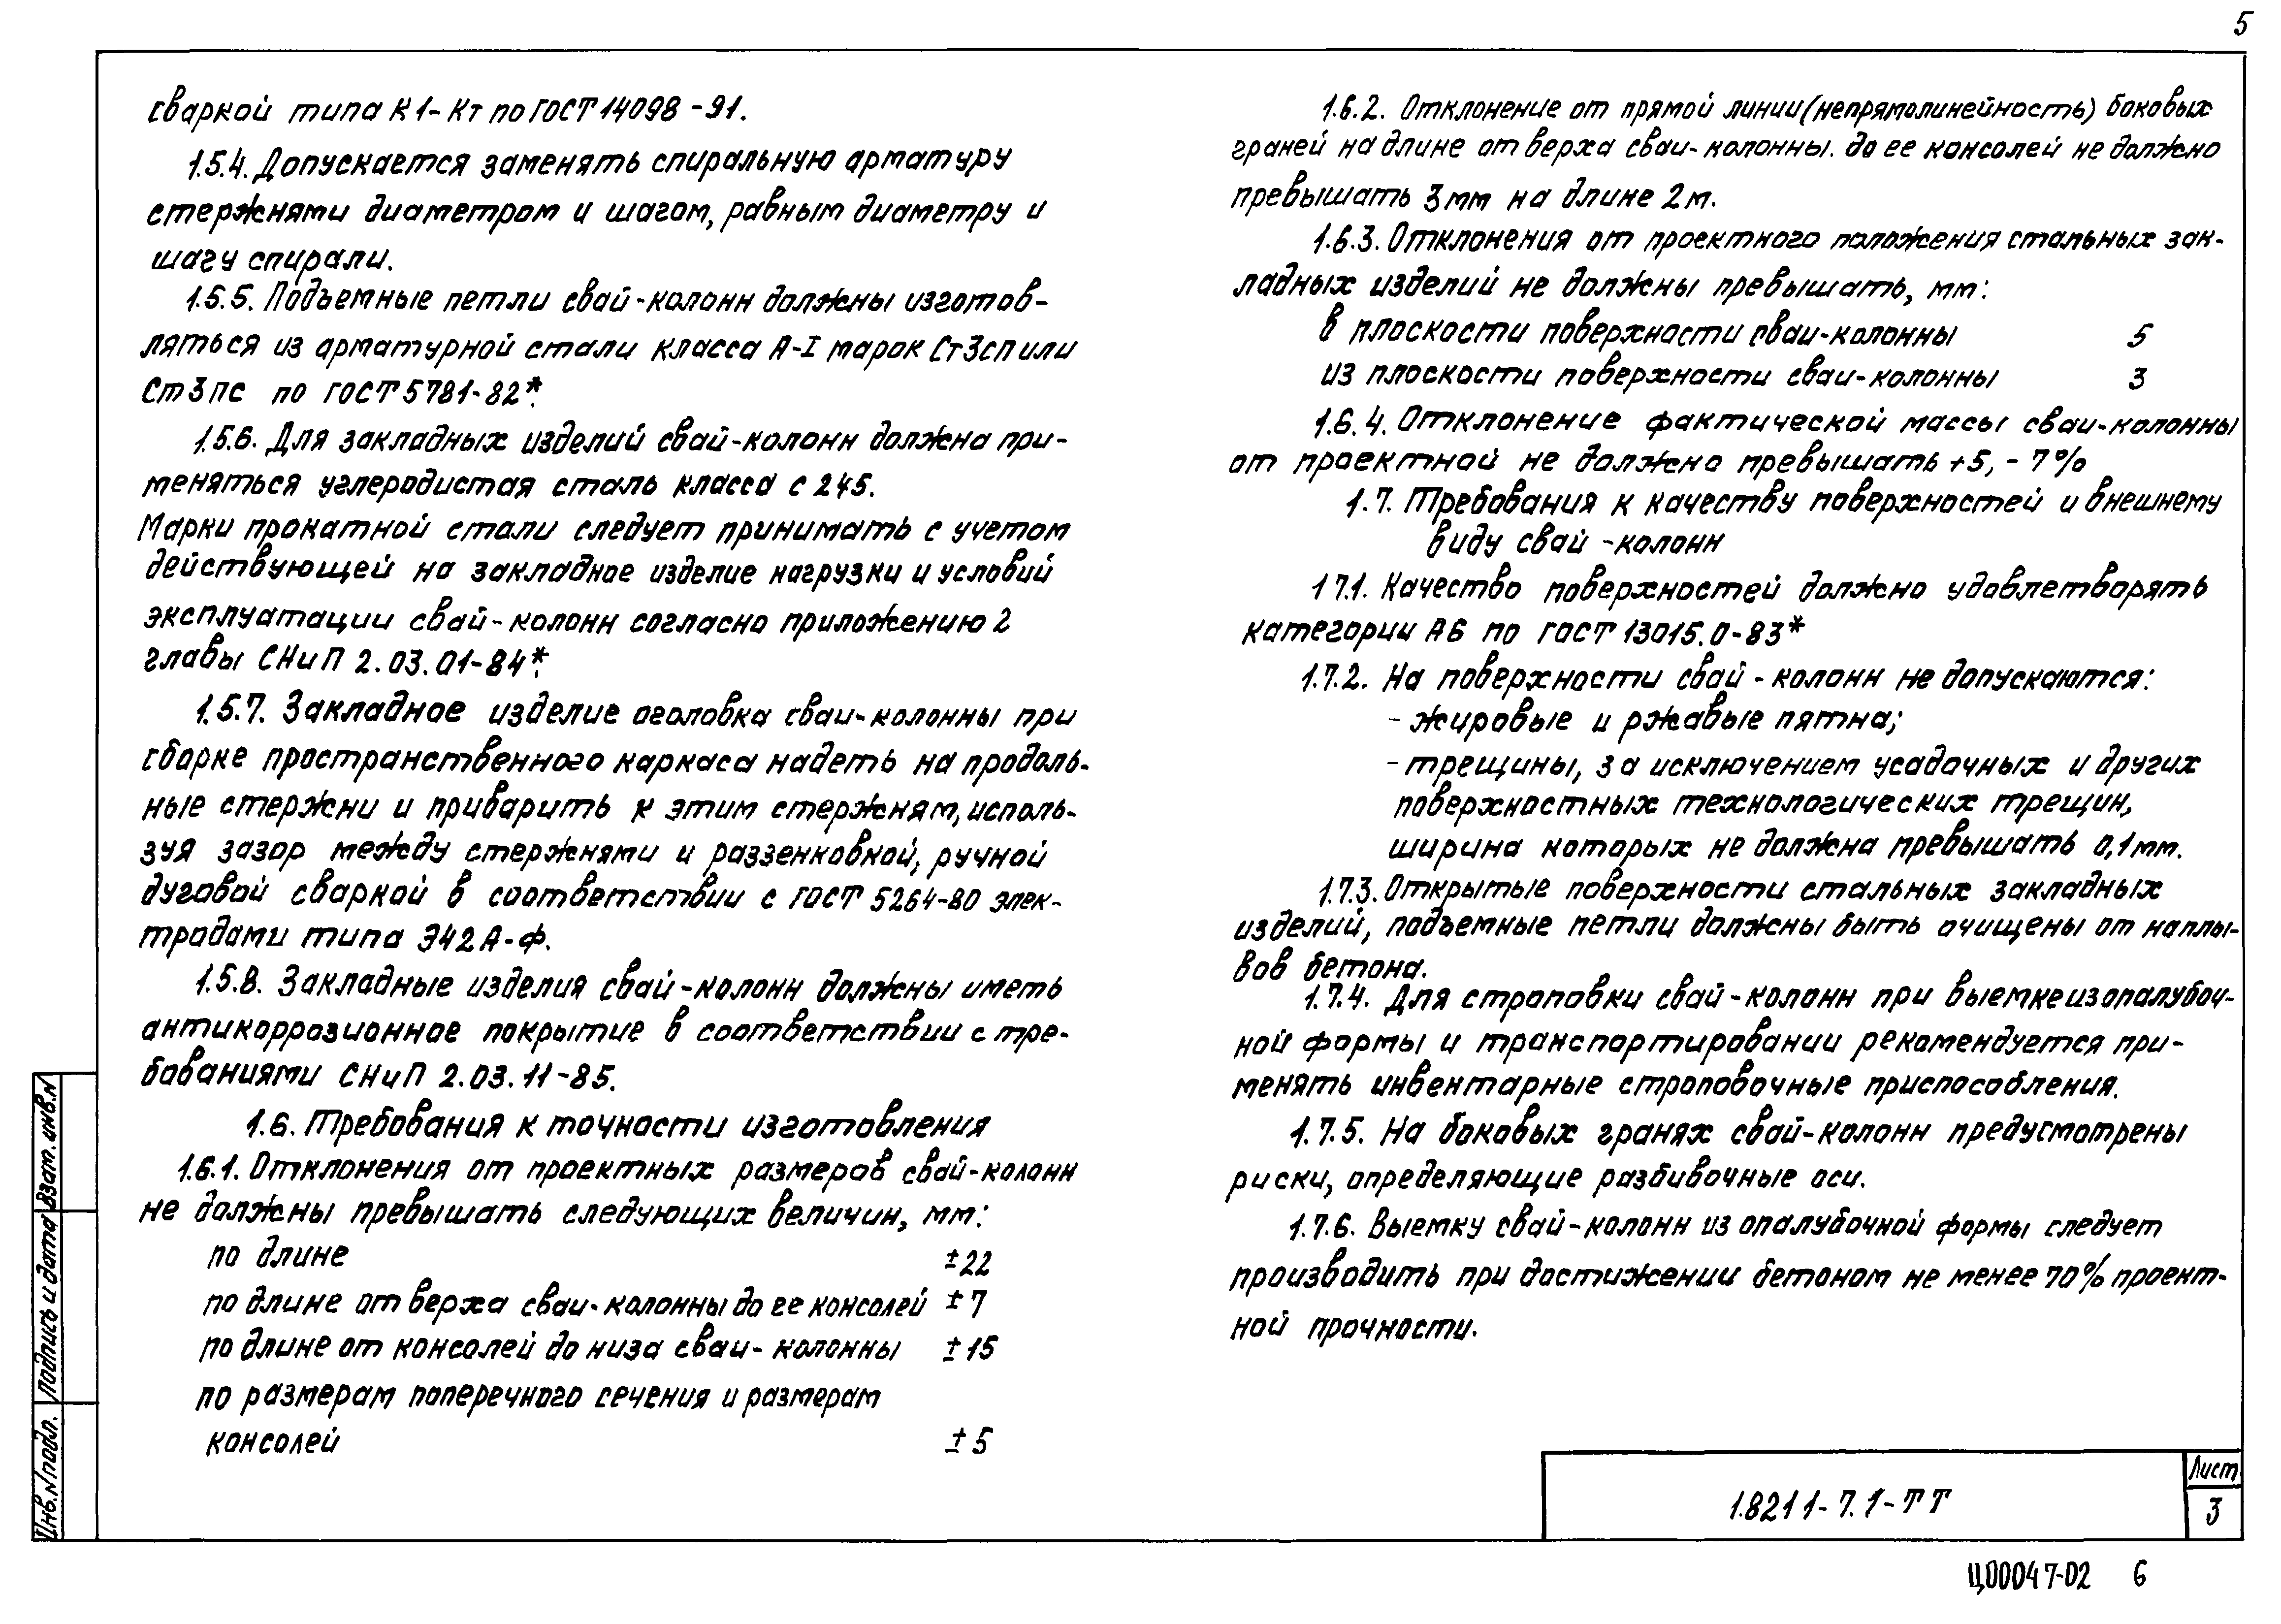 5
сваркой типа К1-Кт по ГОСТ 14098-91.
1.5.4. Допускается заменять спиральную арматуру
стержнями диаметром и шагом, равным диаметру и
шагу спирали.
1.5.5. Подъемные петли свай-колонн должны изготов-
ляться из арматурной стали класса А-I марок Ст3сп или
Ст3пс по ГОСТ 5781-82*.
1.5.6. Для закладных изделий свай-колонн должна при-
меняться углеродистая сталь класса с 245.
Марки прокатной стали следует принимать с учетом
действующей на закладное изделие нагрузки и условий
эксплуатации свай-колонн согласно приложению 2
главы СНиП 2.03.01-84*.
1.5.7. Закладное изделие оголовка сваи-колонны при
сборке пространственного каркаса надеть на продоль-
ные стержни и приварить к этим стержням, исполь-
зуя зазор между стержнями и раззенковкой, ручной
дуговой сваркой в соответствии с ГОСТ 5264-80 элек-
тродами типа Э42А-Ф.
1.5.8. Закладные изделия свай-колонн должны иметь
антикоррозионное покрытие в соответствии с тре-
бованиями СНиП 2.03.11-85.
1.6. Требования к точности изготовления
1.6.1. Отклонения от проектных размеров свай-колонн
не должны превышать следующих величин, мм:
по длине ±22
по длине от верха сваи-колонны до ее консолей ±7
по длине от консолей до низа сваи-колонны ±15
по размерам поперечного сечения и размерам
консолей ±5
1.6.2. Отклонение от прямой линии (непрямолинейность) боковых
граней на длине от верха сваи-колонны. до ее консолей не должно
превышать 3мм на длине 2м.
1.6.3. Отклонения от проектного положения стальных зак-
ладных изделий не должны превышать, мм:
в плоскости поверхности сваи-колонны 5
из плоскости поверхности сваи-колонны 3
1.6.4. Отклонение фактической массы сваи-колонны
от проектной не должно превышать +5, -7%
1.7. Требования к качеству поверхностей и внешнему
виду свай-колонн
1 7.1. Качество поверхностей должно удовлетворять
категории А6 по ГОСТ 13015.0-83*
1.7.2. На поверхности свай-колонн не допускаются:
- жировые и ржавые пятна;
- трещины, за исключением усадочных и других
поверхностных технологических трещин,
ширина которых не должна превышать 0,1мм.
1.7.3. Открытые поверхности стальных закладных
изделий, подъемные петли должны быть очищены от наплы-
вов бетона.
1.7.4. Для строповки свай-колонн при выемке из опалубоч-
ной формы и транспортировании рекомендуется при-
менять инвентарные строповочные приспособления.
1.7.5. На боковых гранях свай-колонн предусмотрены
риски, определяющие разбивочные оси.
1.7.6. Выемку свай-колонн из опалубочной формы следует
производить при достижении бетоном не менее 70% проект-
ной прочности.
Взам. инв. N
Подпись и дата
Инв. N подл.
1.821 1-7.1-ТТ
Лист
3
Ц00047-02 6